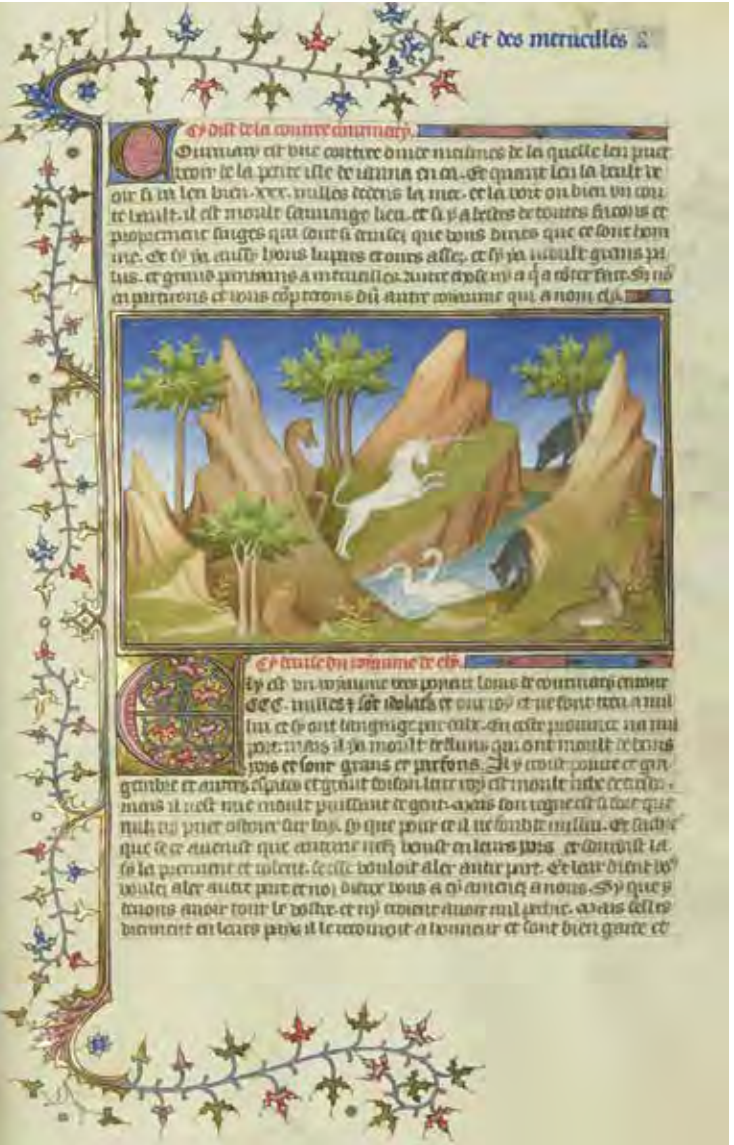 Et des merueilles
Cy dist de la contree
est vne contree dinde meismes de la quelle len puet
veoir de la petite isle de Et quant len la veult ve
oir si va len bien .xxx. milles dedens la mer. et la voit on bien vn cou
te hault. il est moult sauuaige lieu. et si y a bestes de toutes facons et
proprement singes qui sont si que vous diries que ce sont hom
me. Et sy ya aussy lyons lupars et ours assez. et sy ya moult grans
et grans a merueilles. Autre chose ny a
en partirons et vous autre royaume qui a nom ely.
Cy deuise du royaume de ely.
Ely est vn royaume vers ponent loins de enuiron
CCC. milles et ont roy et ne sont treu a nul
lui et sy ont languaige par eulx. En ceste prouince na nul
port. mais il ya moult de fluns qui ont moult de bons
pors et sont grans et parfons. Il y croist poiure et gin
gembre et autres espices et grant foison. Leur roy est moult riche de tresor.
mais il nest mie moult puissant de gent. Mais son regne est si fort que
nulz ne puet ostoier sur luy. sy que pour ce il ne doubte nullui. Et
que se ce auenist que aucune nef venist en leurs pors
sy la prennent et se elle vouloit aler autre part. Et leur dient
voulez aler autre part et noz dieux vous a cy amenez a nous. Sy que
deuons auoir tout le vostre. et ny auoir nul pechie. Mais celles
viennent en leurs pays il le recoiuoit a honneur et sont bien garde et